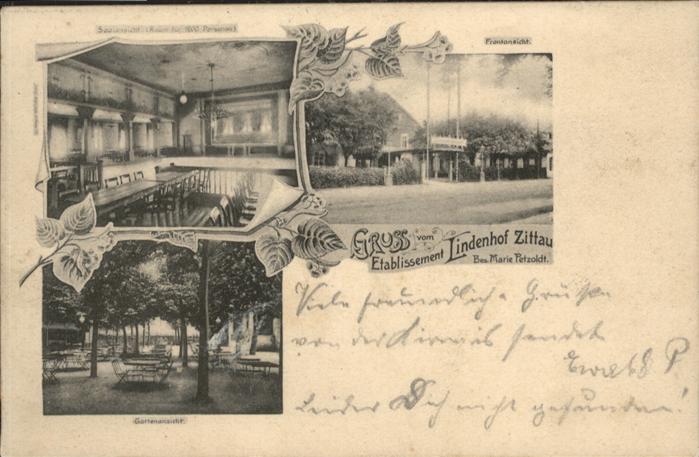 Saalansicht. (Raum für 1600 Personen).
Frontansicht.
Gruss vom
Etablissement Lindenhof Zittau
Bes. Marie Petzoldt.
Viele freundliche Grüße
von der Kirmeß sendet
Ewald P.
Leider Dich nicht gefunden!
Gartenansicht.